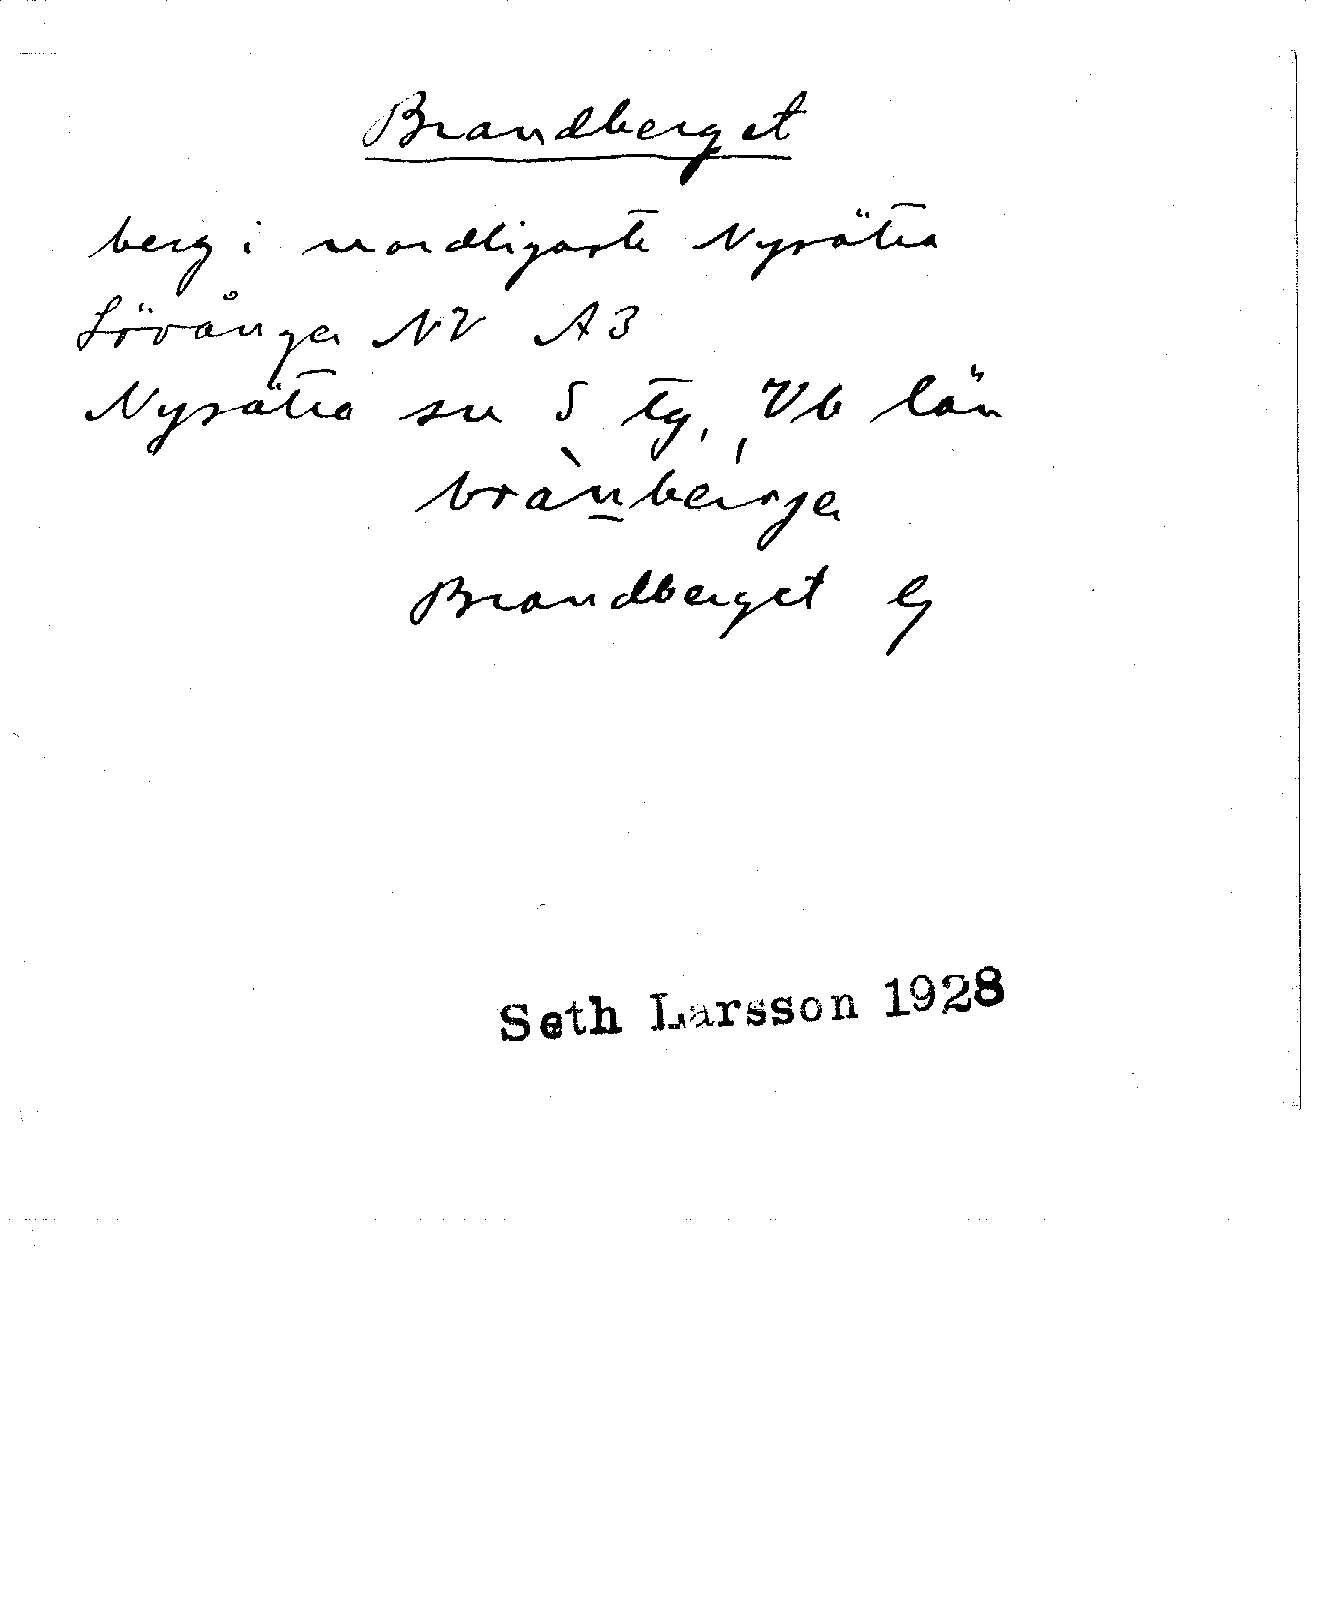 Brandberget
berg i nordligaste Nysätra
Lövånger NV A3
Nysätra sn S tg, Vb län
Brandberget Eg
Seth Larsson 1928